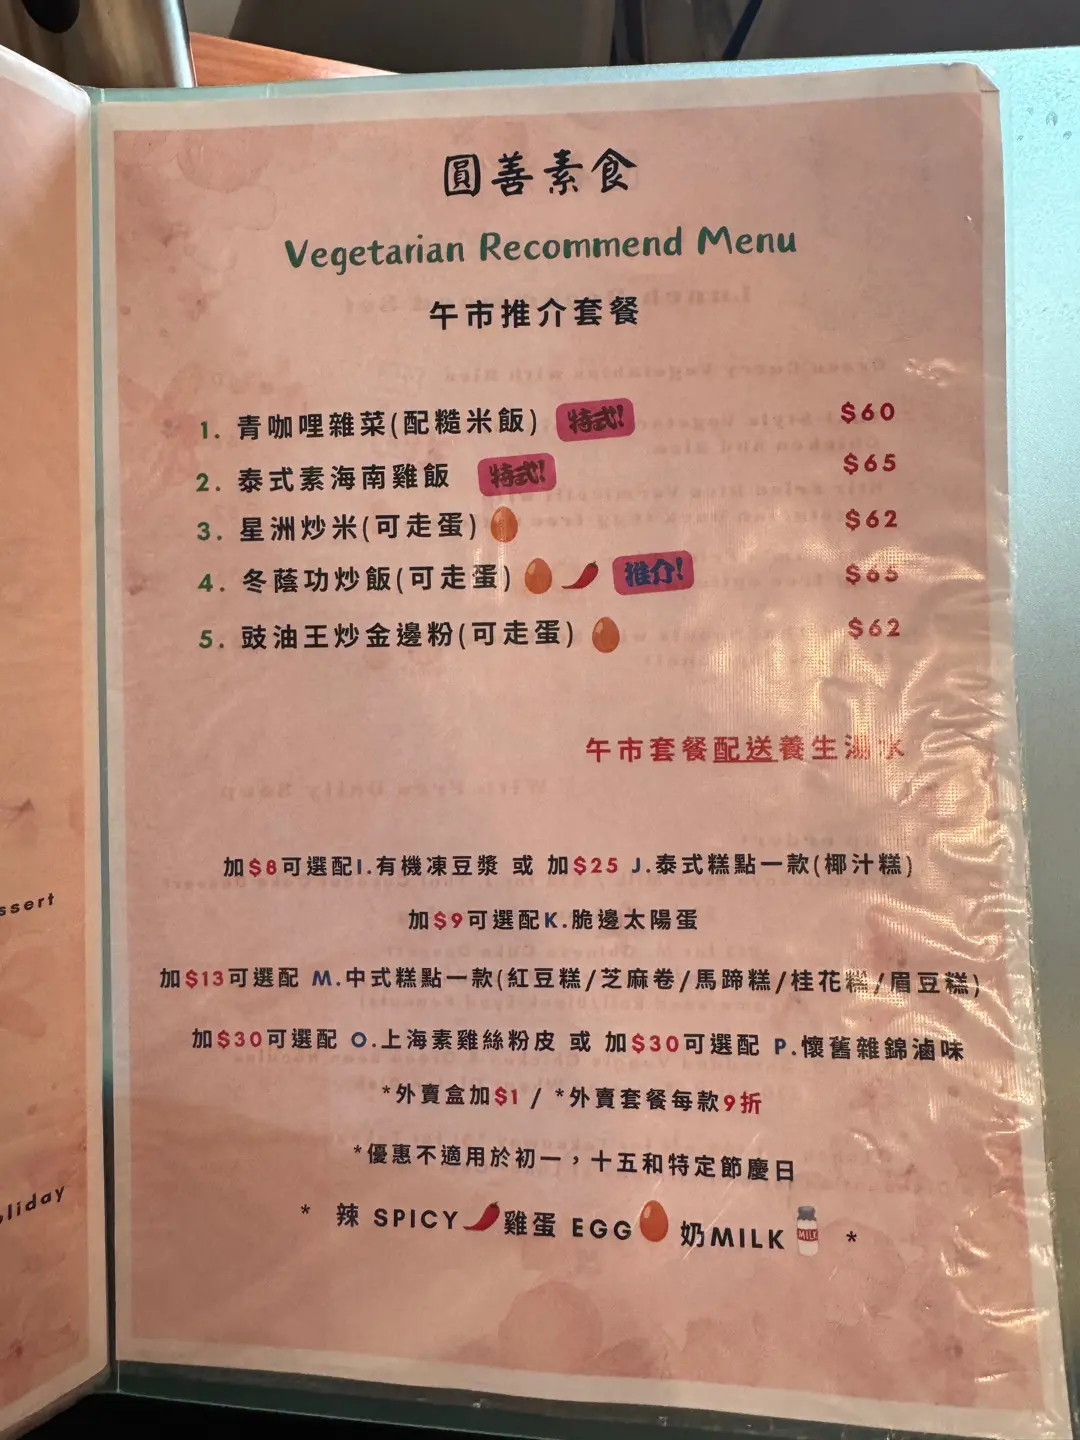 圓善素食
Vegetarian Recommend Menu
午市推介套餐
1. 青咖哩雜菜(配糙米飯) 特式! $60
2. 泰式素海南雞飯 特式! $65
3. 星洲炒米(可走蛋) $62
4. 冬蔭功炒飯(可走蛋) 推介! $65
5. 豉油王炒金邊粉(可走蛋) $62
午市套餐配送養生湯水
加$8可選配I.有機凍豆漿 或 加$25 J.泰式糕點一款(椰汁糕)
加$9可選配K.脆邊太陽蛋
加$13可選配 M.中式糕點一款(紅豆糕/芝麻卷/馬蹄糕/桂花糕/眉豆糕)
加$30可選配 O.上海素雞絲粉皮 或 加$30可選配 P.懷舊雜錦滷味
*外賣盒加$1 / *外賣套餐每款9折
*優惠不適用於初一，十五和特定節慶日
* 辣 SPICY 雞蛋 EGG 奶MILK MILK *
ssert
oliday